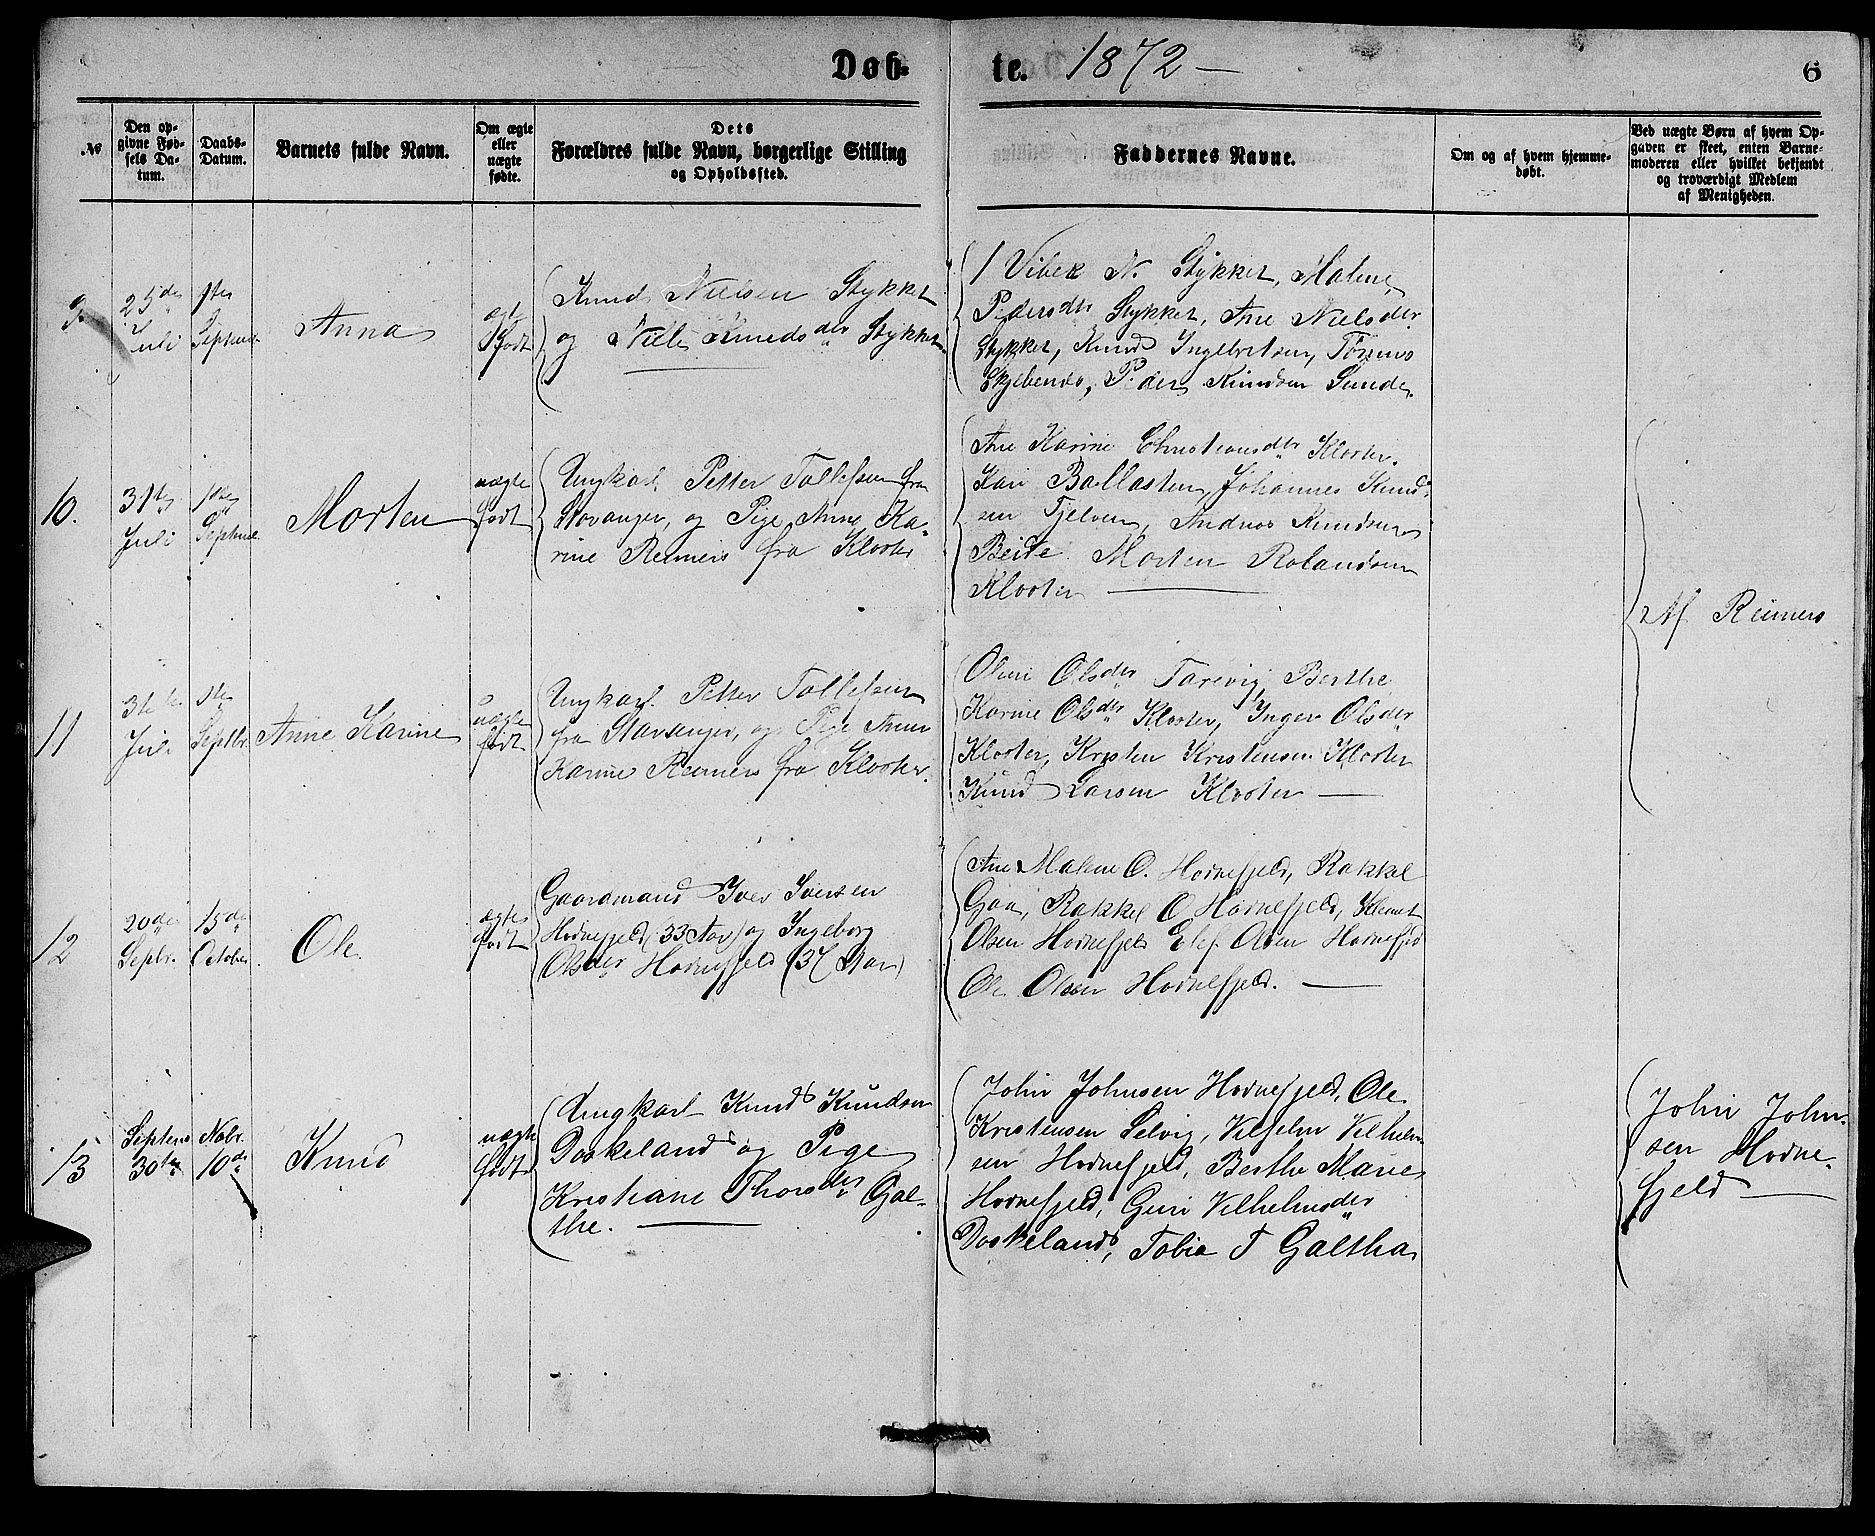 Døb- te. 1872 — 6
№
Den op-
givne Fød-
sels Da-
tum.
Daabs-
Datum.
Barnets fulde Navn.
Om ægte
eller
uægte
fødte.
Dets
Forældres fulde Navn, borgerlige Stilling
og Opholdssted.
Faddernes Navne.
Om og af hvem hjemme-
døbt.
Ved uægte Børn af hvem Op-
gaven er skeet, enten Barne-
moderen eller hvilket bekjendt
og troværdigt Medlem
af Menigheden.
9
25de
Juli
1ste
Septembr
Anna
ægte
født
Knud Nielsen Stykket
og Knudsdtr Stykket
Vibek N. Stykket, Malene
Pedersdtr Stykket, Ane Nielsdtr
Stykket, Knud Ingebretsen,
Peder Knudsen Sunde.
10.
31te
Juli
1ste
Septembr
Morten
uægte
født
Ungkarl Petter Tollefsen fra
Stavanger, og Pige Anne Ka-
rine Reimers fra Kloster
Ane Karine Christiansdtr Kloster.
Kari Ballasten, Johannes Knud-
sen Tjelven, Andreas Knudsen
Beite. Morten Rolandsen
Kloster —
Af Reimers
11
31te
Juli
1ste
Septbr.
Anne Karine
uægte
født
Ungkarl. Petter Tollefsen
fra Stavanger, og Pige Anne
Karine Reimers fra Kloster.
Olene Olsdtr Tarevig, Berthe
Karine Olsdtr Kloster, Inger Olsdtr
Kloster, Kristen Kristensen Kloster
Knud Larsen Kloster —
12
20de
Septbr.
15de
October
Ole
ægte
født
Gaardmand Iver Iversen
Hodnefjeld (33 Aar) og Ingeborg
Olsdtr Hodnefjeld (37 Aar)
Ane Malene O. Hodnefjeld, Rakkel
Gaa, Rakkel O Hodnefjeld, Klemet
Olsen Hodnefjeld Elef Olsen Hodnefjeld
Ole Olsen Hodnefjeld. —
13
Septembr
30te
Nobr.
10de
Knud
uægte
født
Ungkarl Knud Knudsen
Daskeland og Pige
Kristiane Thorsdtr Gal-
the. —
John Johnsen Hodnefjeld, Ole
Kristensen Selvig, Vilhelm Vilhelm-
sen Hodnefjeld, Berthe Marie
Hodnefjeld, Guri Vilhelmsdtr
Daskeland, Tobia T Galtha
John John-
sen Hodne-
fjeld —